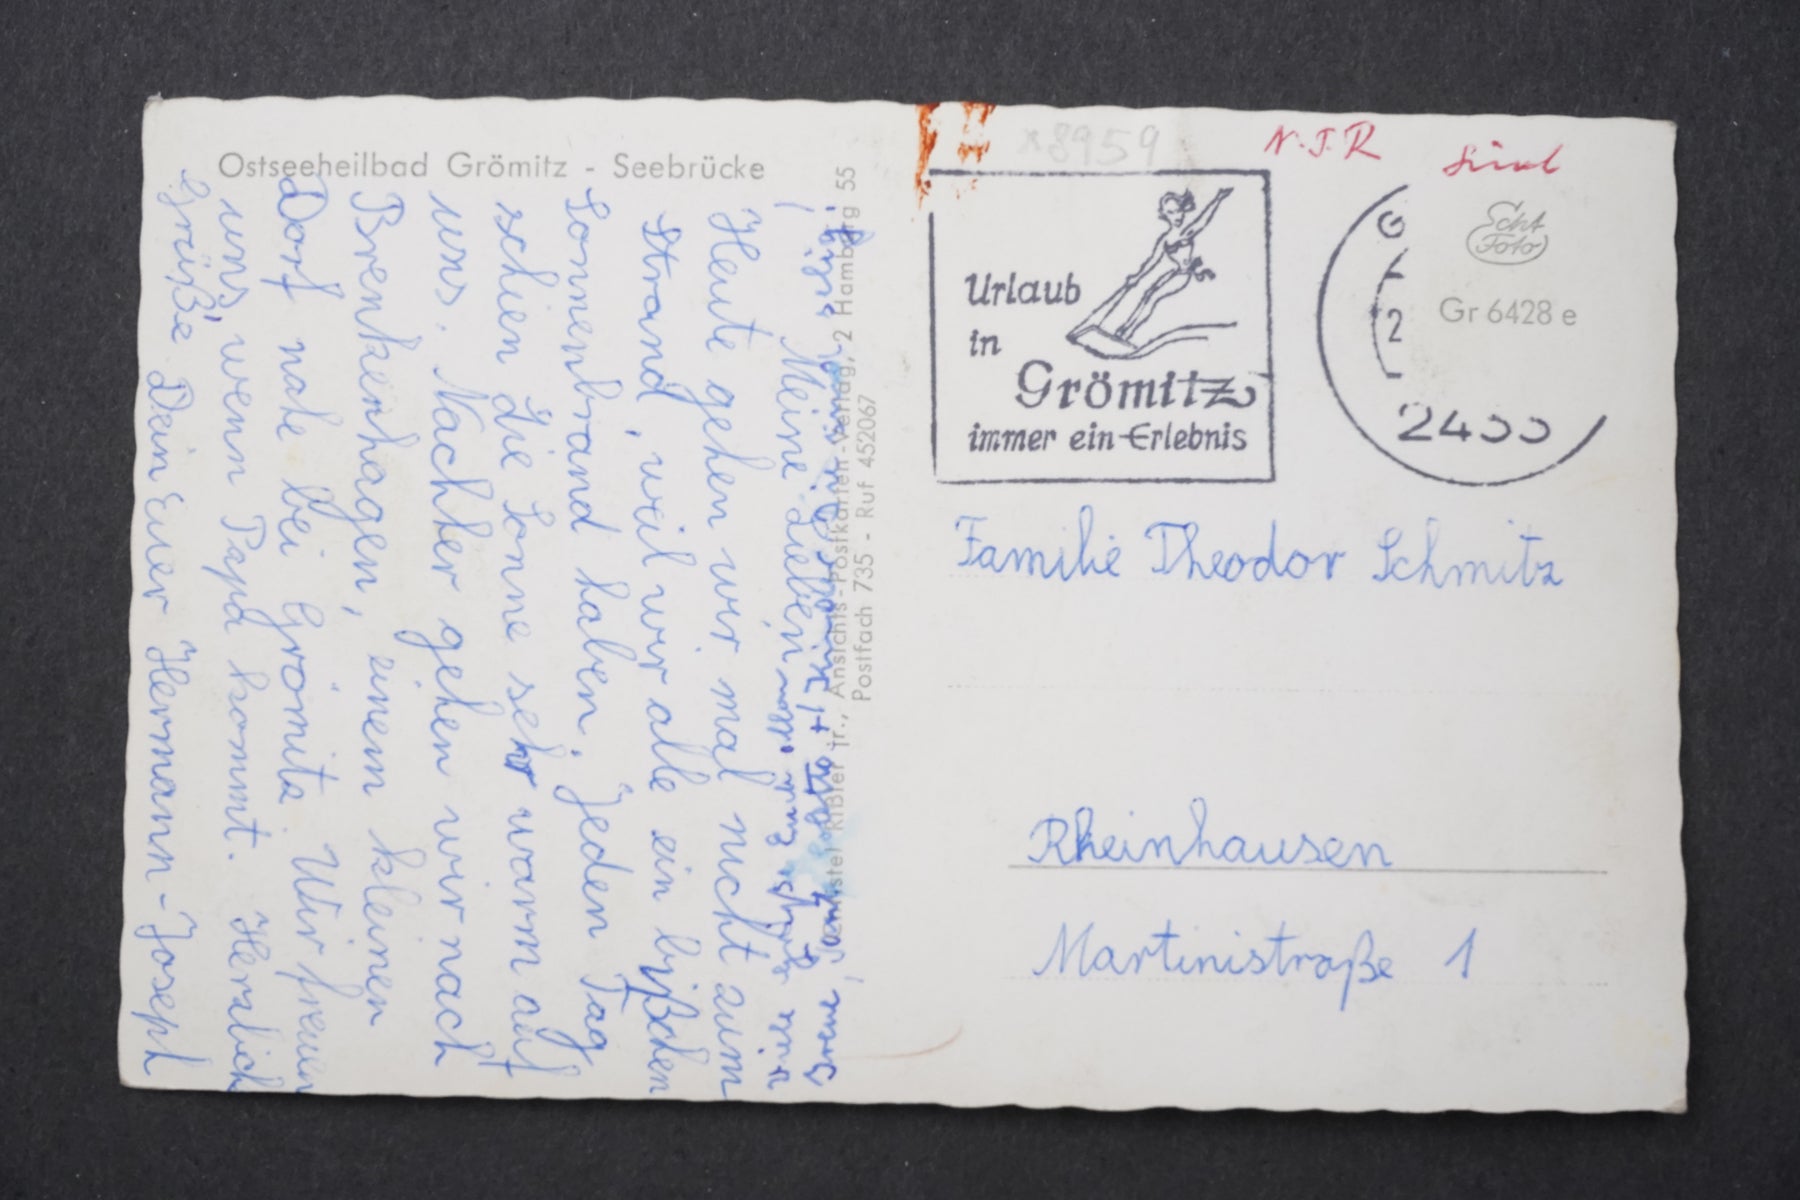 Ostseeheilbad Grömitz - Seebrücke
Meine Lieben!
Heute gehen wir mal nicht zum
Strand, weil wir alle ein bißchen
Sonnenbrand haben. Jeden Tag
schien die Sonne sehr warm auf
uns. Nachher gehen wir nach
Brenkenhagen, einem kleinen
Dorf nahe bei Grömitz Wir freuen
uns, wenn Papa kommt. Herzlich
Grüße Dein Euer Hermann-Joseph
viele Grüße Euch allen
Irene,
Kißler jr., Ansichts-Postkarten-Verlag, 2 Hamburg 55
Postfach 735 - Ruf 452067
8959
N.J.R
Urlaub
in
Grömitz
immer ein Erlebnis
G
2
24
Echt
Foto
Gr 6428 e
Familie Theodor Schmitz
Rheinhausen
Martinistraße 1